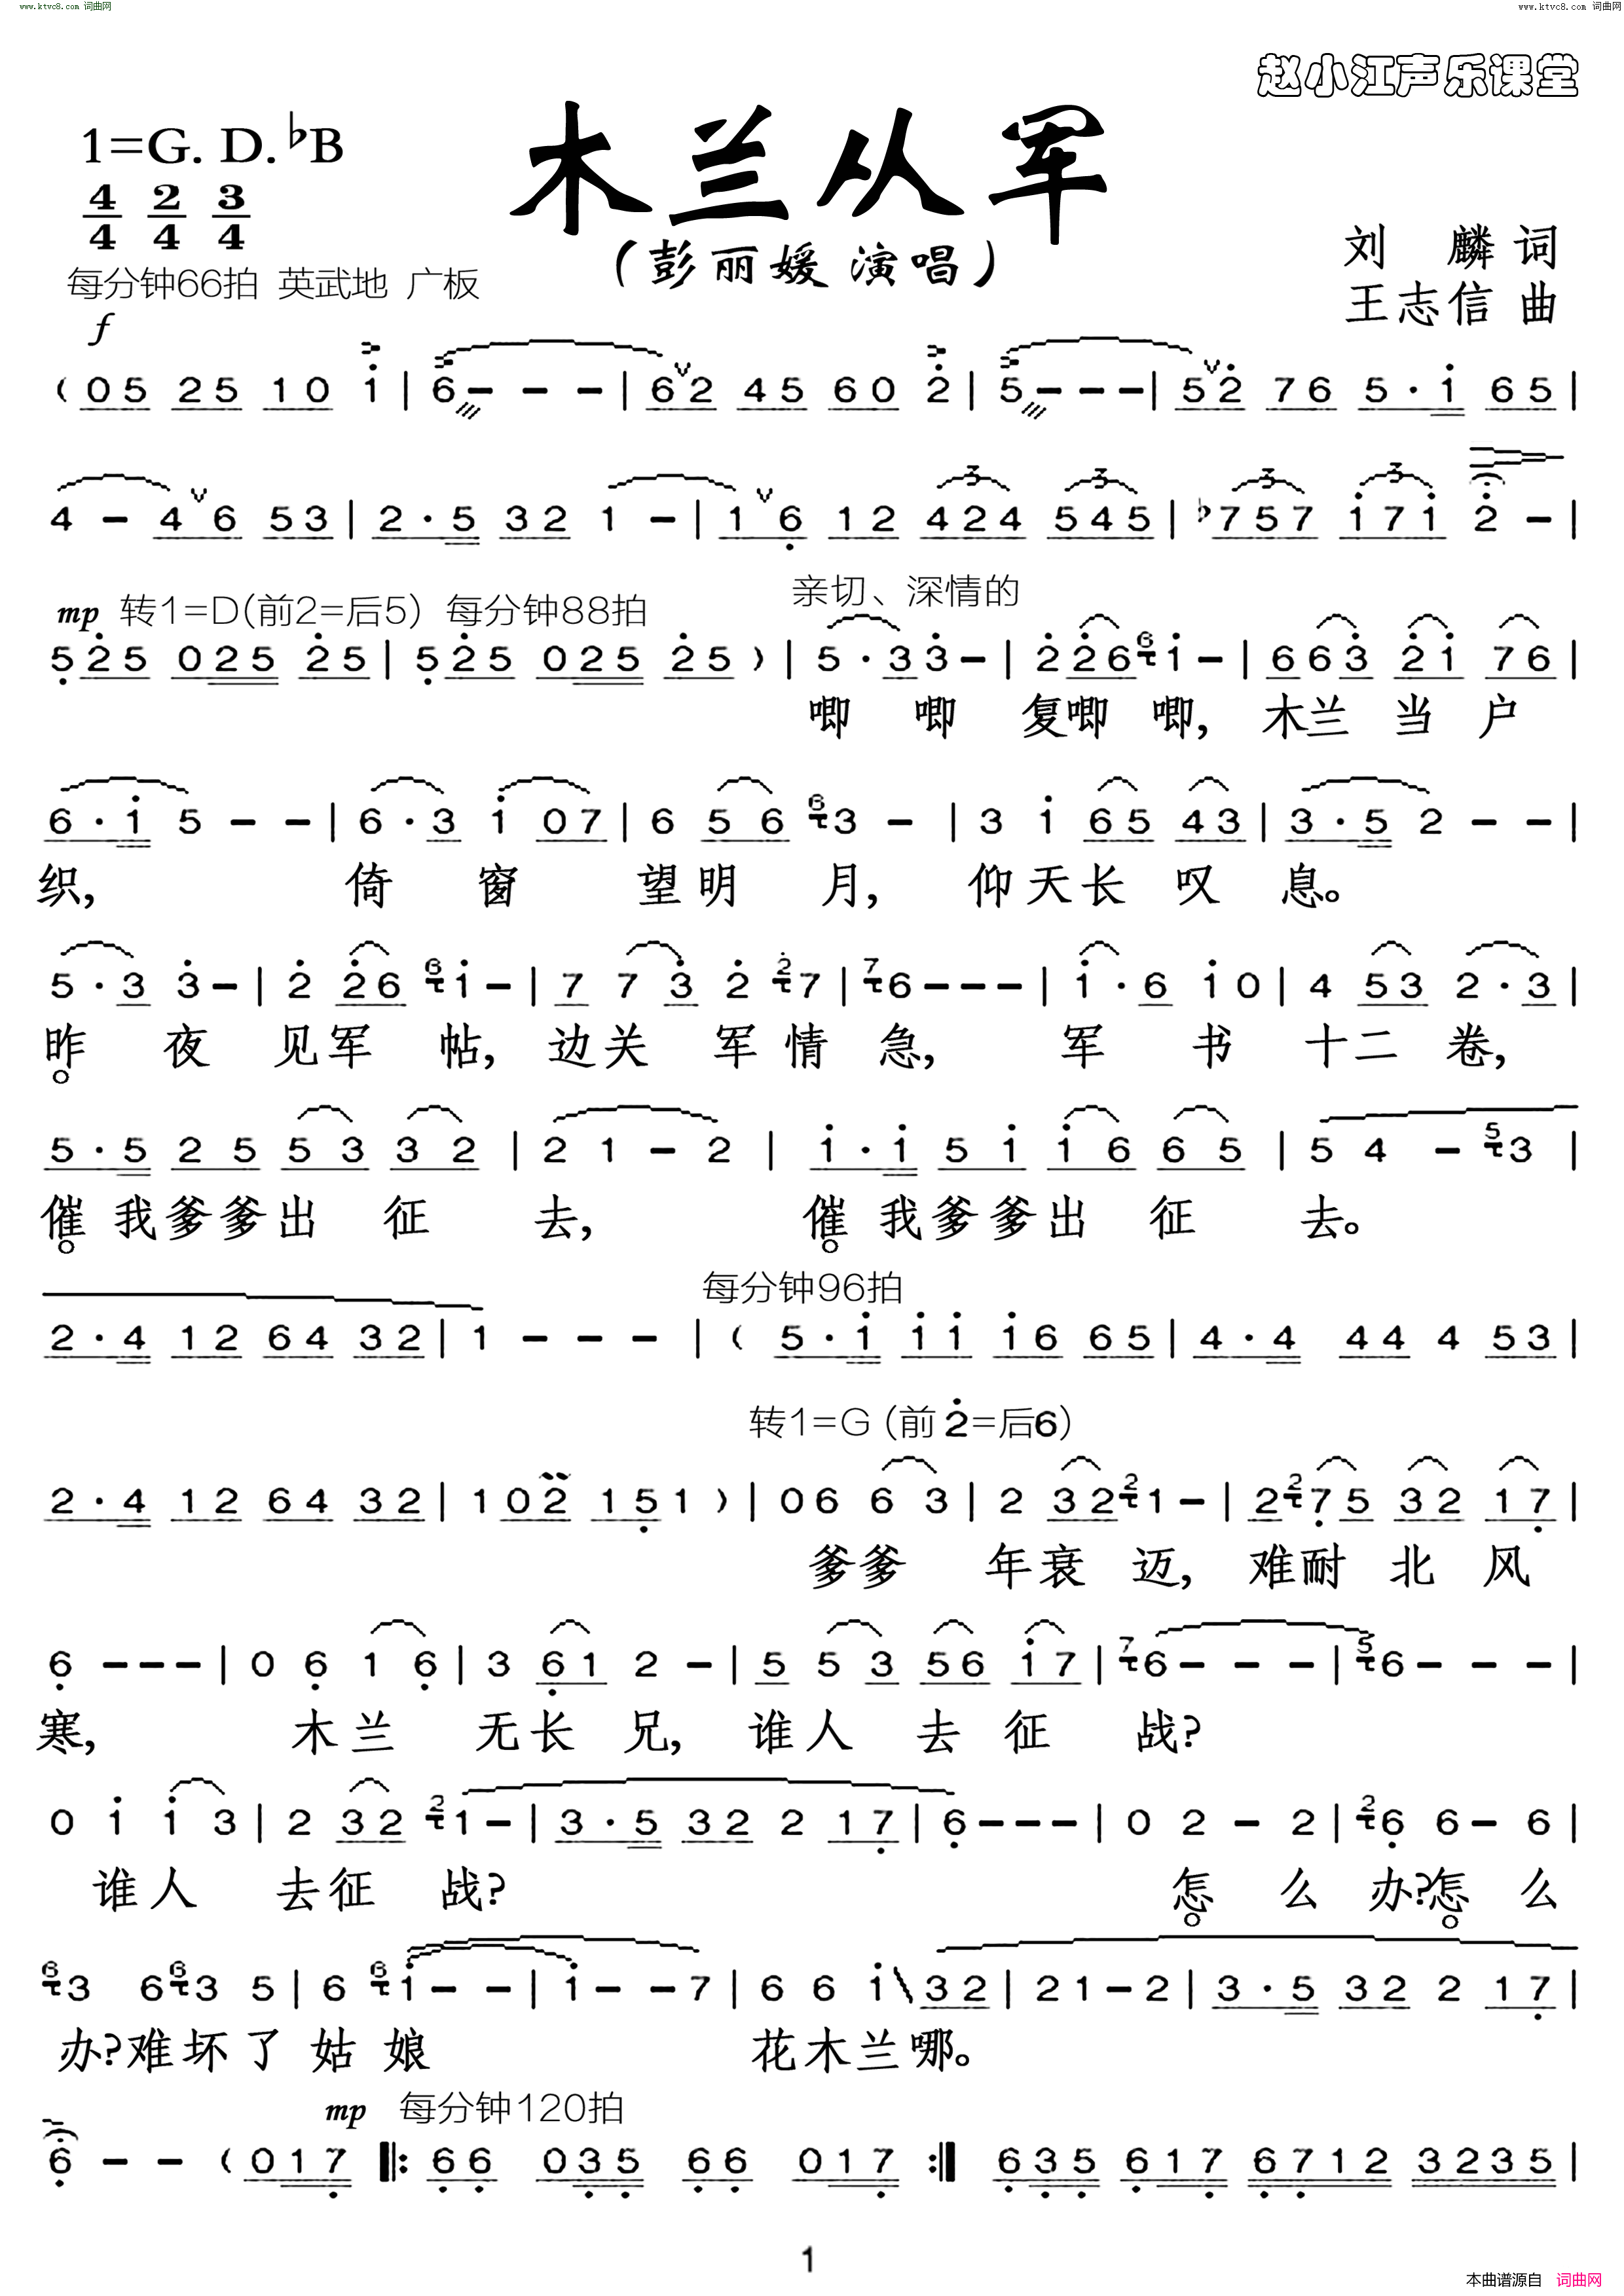 www.ktvc8.com 词曲网
www.ktvc8.com 词曲网
赵小江声乐课堂
木兰从军
1=G. D. ♭B
4/4 2/4 3/4
(彭丽媛 演唱)
刘 麟 词
王志信 曲
每分钟66拍 英武地 广板
f
( 05 25 10 i | 6 - - - | 62 45 60 2̇ | 5 - - - | 52̇ 76 5·i 65 |
4 - 46 53 | 2·5 32 1 - | 16̣ 12 424 545 | ♭757 i7i 2̇ - |
mp 转1=D(前2=后5) 每分钟88拍
亲切、深情的
5̣2̇5 025 2̇5 | 5̣2̇5 025 2̇5 ) | 5·3̇ 3̇ - | 2̇ 2̇6 i - | 6 63̇ 2̇i 76 |
唧 唧 复唧 唧, 木兰 当 户
6·i 5 - - | 6·3 i 07 | 6 56 3 - | 3 i 65 43 | 3·5 2 - - |
织, 倚 窗 望明 月, 仰天长 叹 息。
5·3 3̇ - | 2̇ 2̇6 i - | 7 73̇ 2̇ 7 | 6 - - - | i·6 i0 | 4 53 2·3 |
昨 夜 见军 帖, 边关 军情 急, 军 书 十二 卷,
5·5 25 53 32 | 2 1 - 2 | i·i 5i i6 65 | 5 4 - 3 |
催 我爹爹出 征 去, 催 我爹爹出 征 去。
每分钟96拍
2·4 12 64 32 | 1 - - - | ( 5·i ii i6 65 | 4·4 44 4 53 |
转1=G (前 2̇=后6)
2·4 12 64 32 | 1 02 15̣ 1 ) | 0 6 6 3 | 2 32 1 - | 2 7̣5 32 17̣ |
爹爹 年衰 迈, 难耐 北 风
6̣ - - - | 0 6̣ 1 6̣ | 3 6̣1 2 - | 5 53 56 i7 | 6 - - - | 6 - - - |
寒, 木兰 无长 兄, 谁人 去 征 战?
0 i i 3 | 2 32 1 - | 3·5 32 2 17̣ | 6̣ - - - | 0 2 - 2 | 6̣ 6 - 6 |
谁人 去征 战? 怎 么 办?怎 么
3 6 3 5 | 6 i - - | i - - 7 | 6 6 i 32 | 2 1 - 2 | 3·5 32 2 17̣ |
办?难坏了 姑 娘 花木兰哪。
mp 每分钟120拍
6̣ - - ( 017̣ |: 6̣6̣ 03̣5̣ 6̣6̣ 017̣ :| 6̣3̣5̣ 6̣17̣ 6̣7̣12 3235 |
1
本曲谱源自 词曲网